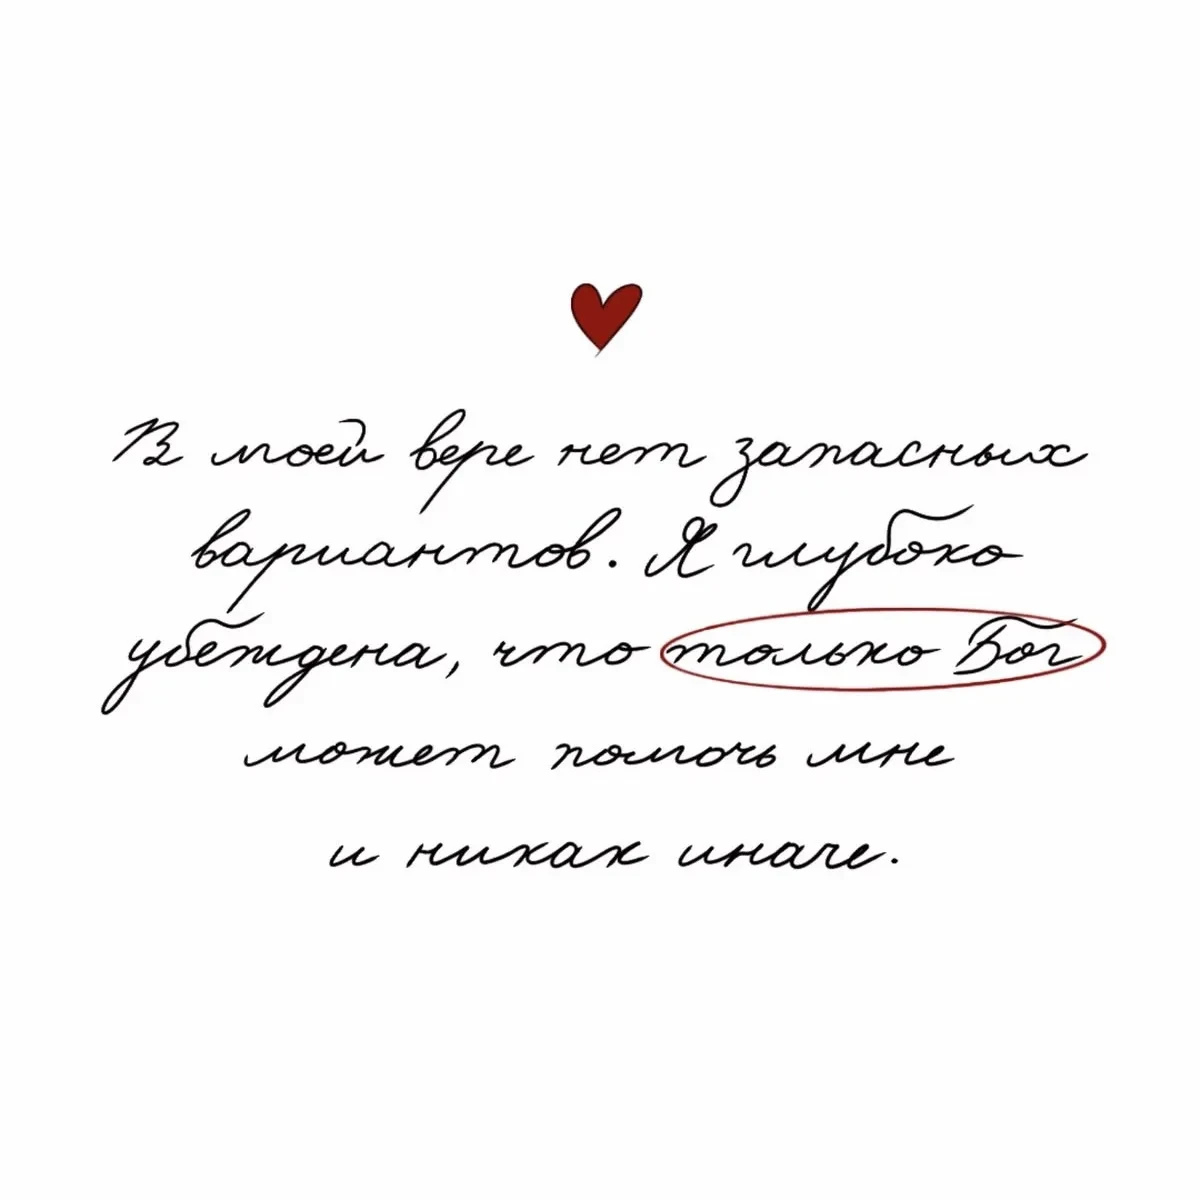 В моей вере нет запасных
вариантов. Я глубоко
убеждена, что только Бог
может помочь мне
и никак иначе.